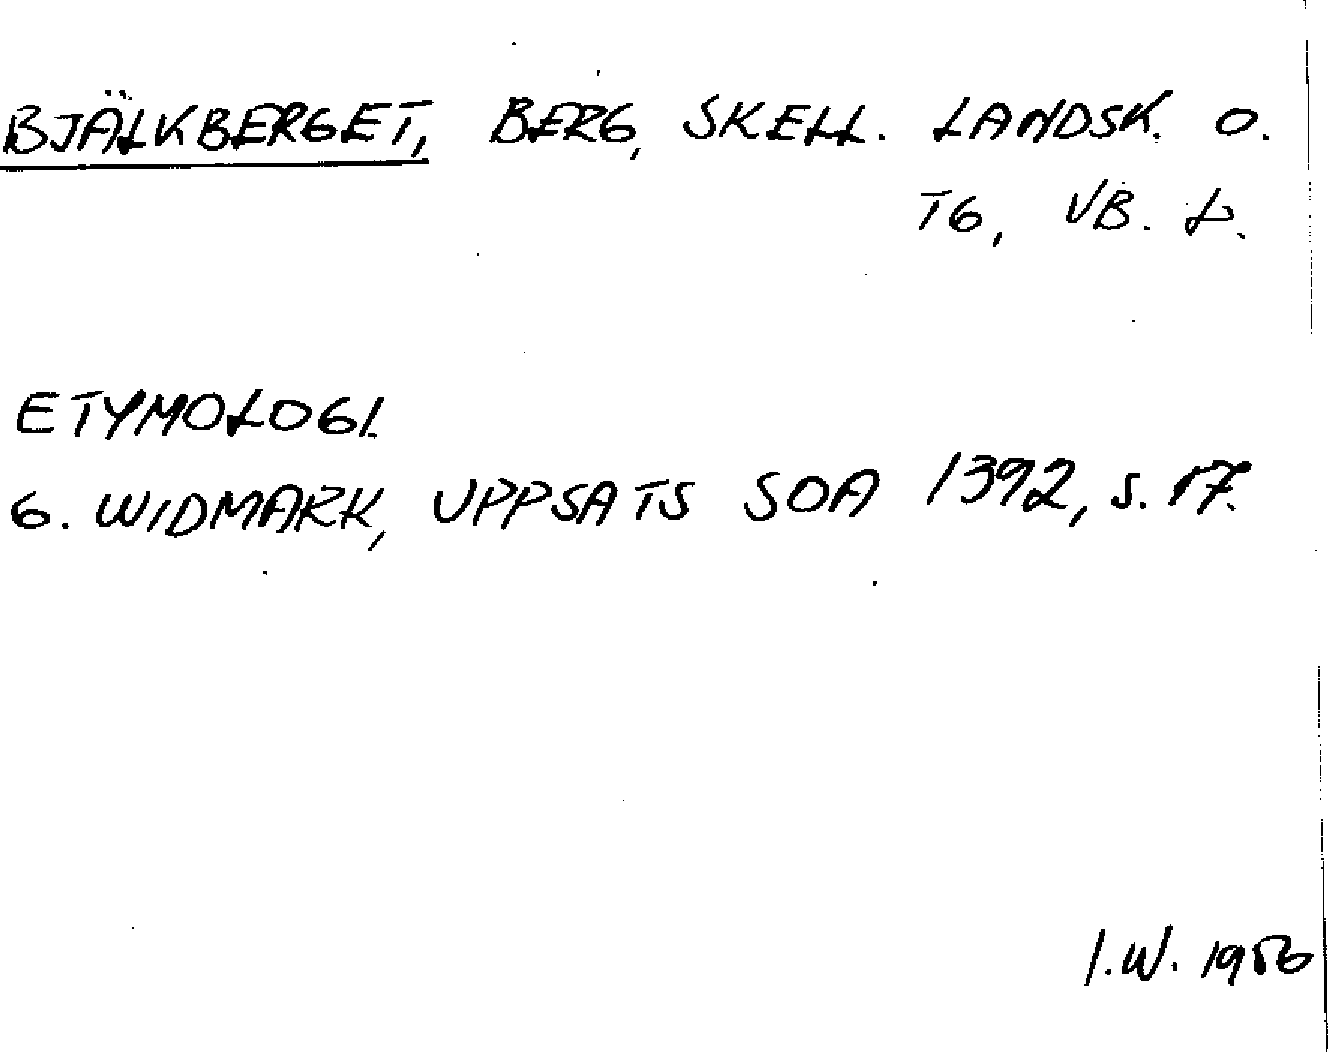 BJÄLKBERGET, BERG, SKELL. LANDSK. O.
TG, VB. L.
ETYMOLOGI.
G. WIDMARK, UPPSATS SOA 1392, S. 17.
I.W. 1956